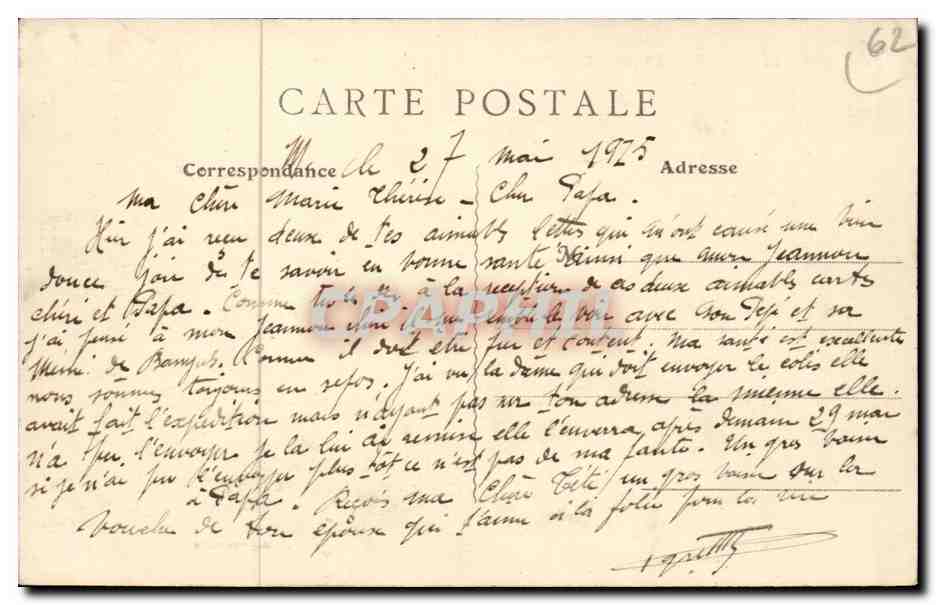 62
CARTE POSTALE
Correspondance
Adresse
le 27 mai 1925
Ma chère Marie Thérèse - Cher Papa.
Hier j'ai reçu deux de tes aimables lettres qui m'ont causé une bien
douce joie de te savoir en bonne santé Ainsi que mon Jeannou
chéri et Papa. Comme toi à la réception de ces deux aimables cartes
j'ai pensé à mon Jeannou chéri avec son Pépé et sa
Mémé de Comme il doit être fier et content. Ma santé est excellente
nous sommes toujours en repos. J'ai vu la dame qui doit envoyer le colis elle
avait fait l'expédition mais n'ayant pas ton adresse la mienne elle
n'a pu l'envoyer je la lui ai remise elle l'enverra après demain 29 mai
si je n'ai pu l'envoyer plus tôt ce n'est pas de ma faute. Un gros baiser
à Papa. Reçois ma Chère Tété un gros baiser sur la
bouche de ton époux qui t'aime à la folie pour la vie
CPAPHIL